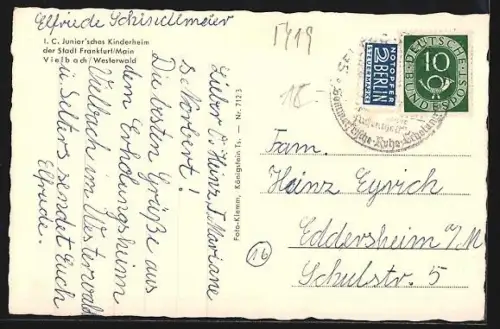 Elfriede Schindelmeier
I. C. Junior'sches Kinderheim
der Stadt Frankfurt/Main
Vielbach/Westerwald
Lieber O. Heinz, T. Mariane
& Norbert!
Die besten Grüße aus
dem Erholungsheim
Vielbach im Westerwald
in Selters sendet Euch
Elfriede.
Foto-Klemm, Königstein Ts. – Nr. 7123
1419
18.-
NOTOPFER
2 BERLIN
STEUERMARKE
DEUTSCHE
BUNDESPOST
10
Fam.
Heinz Eyrich
Eddersheim a/M
Schulstr. 5
16